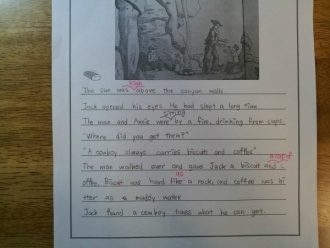 sign
The sun was above the canyon walls.
Jack opened his eyes. He had slept a long time.
sitting
The man and Annie were by a fire, drinking from cups.
"Where did you get them?"
"A cowboy always carries biscuits and coffee"
a cup of
The man walked over and gave Jack a biscuit and c
offee. Biscuit was hard like a rock, and coffee was bi
as
tter as a muddy water
Jack found a cowboy takes what he can get.